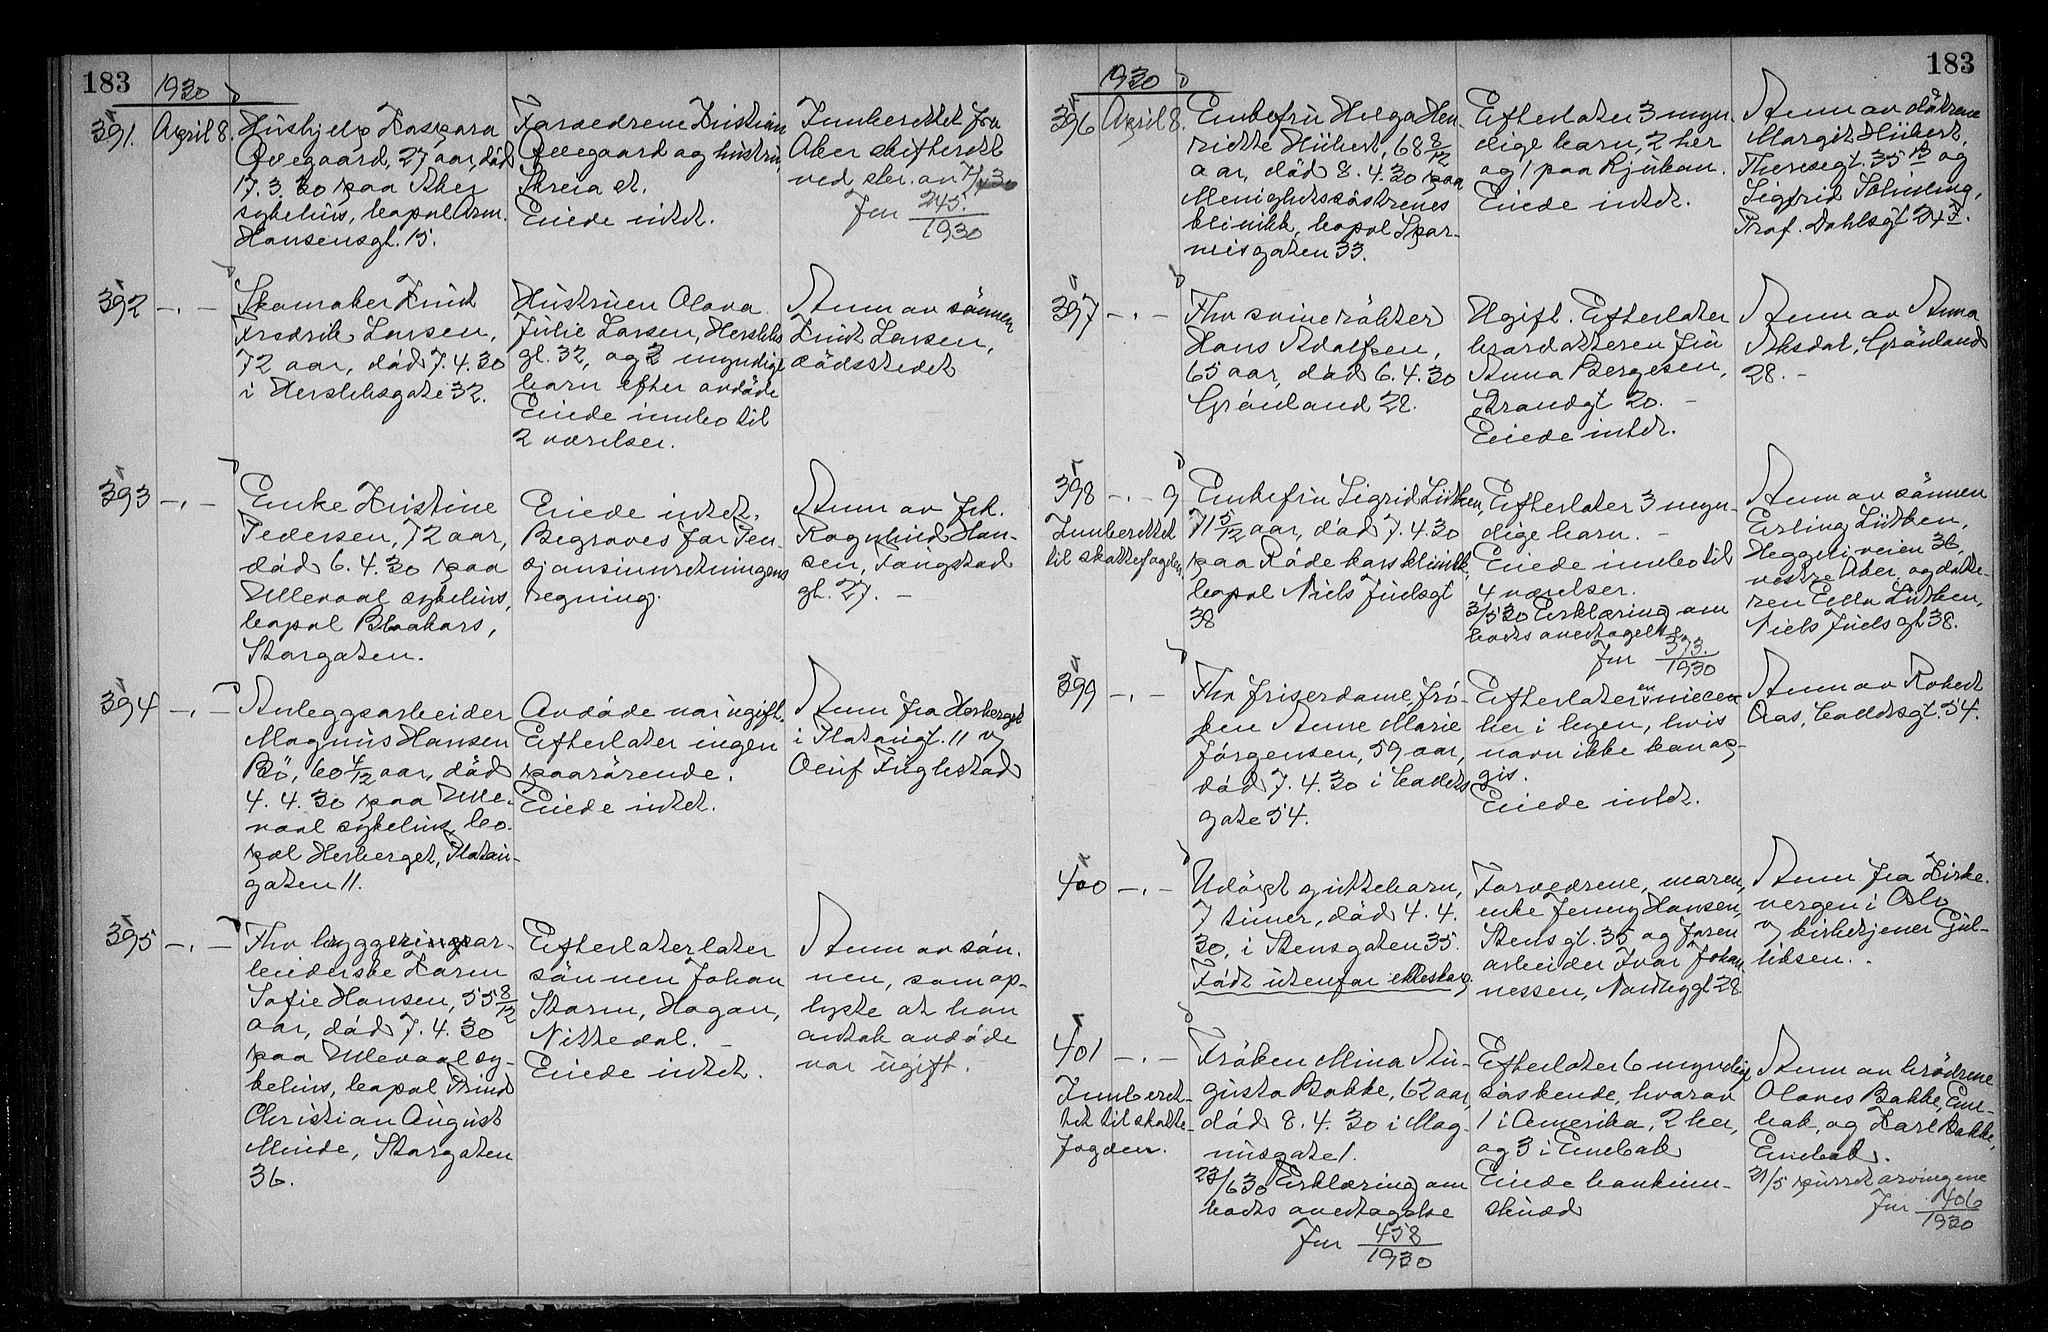 183
1930
391.
April 8.
Hushjelp Kaspara
Ovegaard, 27 aar, död
17.3.30 paa Aker
sykehus, bopæl Arm.
Hansensgt. 15.
Forældrene Kristian
Ovegaard og hustru,
Skreia st.
Eiede intet.
Innberettet fra
Aker skifterett
ved skr. av
Jnr 245
1930
392 -"-
Skomaker Knut
Fredrik Larsen,
72 aar, död 7.4.30
i Herslebsgate 32.
Hustruen Olava
Julie Larsen, Herslebs
gt. 32, og 2 myndige
barn efter avdöde
Eiede innbo til
2 værelser.
Anm av sönnen
Knut Larsen,
dödsstedet
393 -"-
Enke Kristine
Pedersen, 72 aar,
död 6.4.30 paa
Ullevaal sykehus,
bopæl Blaakors,
Storgaten.
Eiede intet.
Begraves for Pen-
sjonsinnretningens
regning.
Anm av frk.
Ragnhild Han-
sen, Tangstad
gt. 27. -
394 -"-
Anleggsarbeider
Magnus Hansen
Bö, 60 4/12 aar, död
4.4.30 paa Ulle-
vaal sykehus, bo-
pæl Herberget, Platou-
gaten 11.
Avdöde var ugift.
Efterlater ingen
paarörende.
Eiede intet.
Anm fra Herberget
i Platougt. 11 v
Oluf Fuglestad
395 -"-
Fhv bryggeriar-
beiderske Karen
Sofie Hansen, 55 8/12
aar, död 7.4.30
paa Ullevaal sy-
kehus, bopæl Prins
Christian August
Minde, Storgaten
36.
Efterlater
sönnen Johan
Storm, Hagan,
Nittedal. -
Eiede intet.
Anm av sön-
nen, som op-
lyste at han
antok avdöde
var ugift.
183
1930
396
April 8.
Enkefru Helga Hen-
riette Hübert, 68 8/12
aar, död 8.4.30 paa
Menighetssöstrenes
klinikk, bopæl Spor-
veisgaten 33.
Efterlater 3 myn-
dige barn, 2 her
og 1 paa Rjukan.
Eiede intet.
Anm av dötrene
Margit Hübert,
Theresegt. 35 B og
Sigfrid
Prof. Dahlsgt 24 F.
397 -"-
Fhv svinerökter
Hans Adolfsen,
65 aar, död 6.4.30
Grönland 28.
Ugift. Efterlater
brordatteren fru
Anna Bergesen,
Strandgt 20. -
Eiede intet.
Anm av Anna
Aksdal, Grönland
28. -
398 -"- 9
Innberettet
til skattefogden
Enkefru Sigrid Lütken,
71 5/12 aar, död 7.4.30
paa Röde kors klinikk,
bopæl Niels Juelsgt
38
Efterlater 3 myn-
dige barn. -
Eiede innbo til
4 værelser.
3/5 30 Erklæring om
bods overtagelse
Jnr 373
1930
Anm av sönnen
Erling Lütken,
Heggeliveien 36,
vestre Aker, og datte-
ren Ella Lütken,
Niels Juels gt 38.
399 -"-
Fhv friserdame, frö-
ken Anne Marie
Jörgensen, 59 aar,
död 7.4.30 i Calletts
gate 54.
Efterlater en niece
her i byen, hvis
navn ikke kan op-
gis.
Eiede intet.
Anm av Robert
Aas, Collettsgt. 54.
400 -"-
Udöpt guttebarn,
7 timer, död 4.4.
30, i Stensgaten 35.
Födt utenfor ekteskap.
Forældrene, moren,
enke Jenny Hansen,
Stensgt. 35 og faren
arbeider Ivar Johan-
nessen, Nordbygt 28.
Anm fra Kirke-
vergen i Oslo
v kirketjener Gul-
liksen. -
401 -"-
Innberet-
tet til skatte-
fogden.
Fröken Mina Au-
gusta Bakke, 62 aar,
död 8.4.30 i Mag-
nusgate 1.
23/6 30 Erklæring om
bods overtagelse
Jnr 458
1930
Efterlater 6 myndige
söskende, hvorav
1 i Amerika, 2 her,
og 3 i Enebak
Eiede bankinn-
skudd
Anm av brödrene
Olaves Bakke, Ene-
bak, og Karl Bakke,
Enebak.
21/5 spurt arvingene
Jnr 406
1930